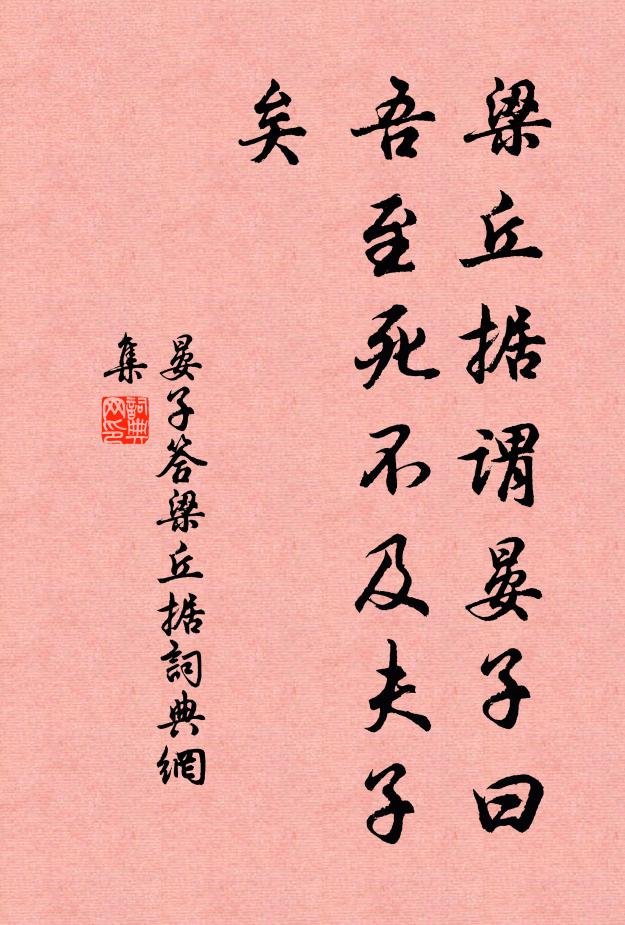 梁丘据謂晏子曰
吾至死不及夫子
矣
晏子答梁丘据詞典網
集
詞典
网印